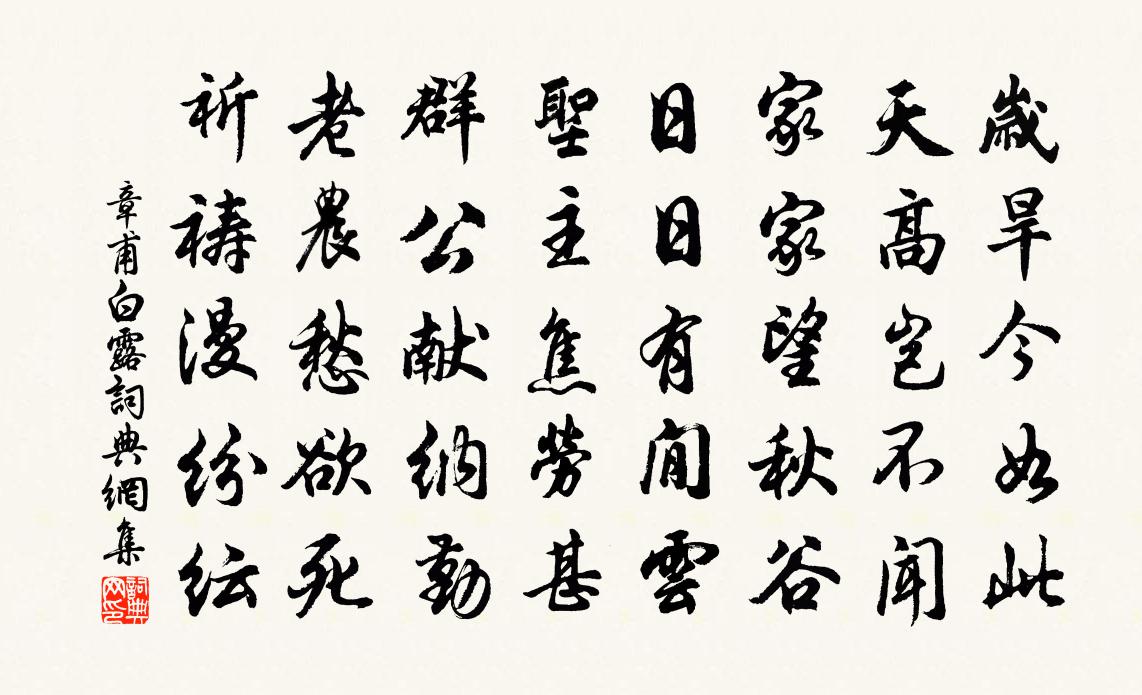 歲旱今如此
天高豈不聞
家家望秋谷
日日有閒雲
聖主焦勞甚
群公献納勤
老農愁欲死
祈禱漫紛紜
章甫白露詞典網集
詞典網印